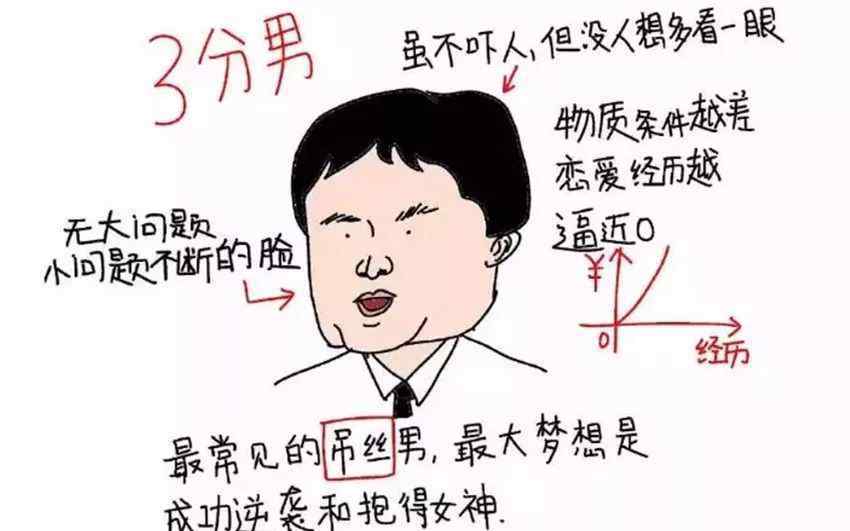 3分男
虽不吓人,但没人想多看一眼
物质条件越差
恋爱经历越
逼近0
无大问题
小问题不断的脸
¥
0
经历
最常见的吊丝男,最大梦想是
成功逆袭和抱得女神.